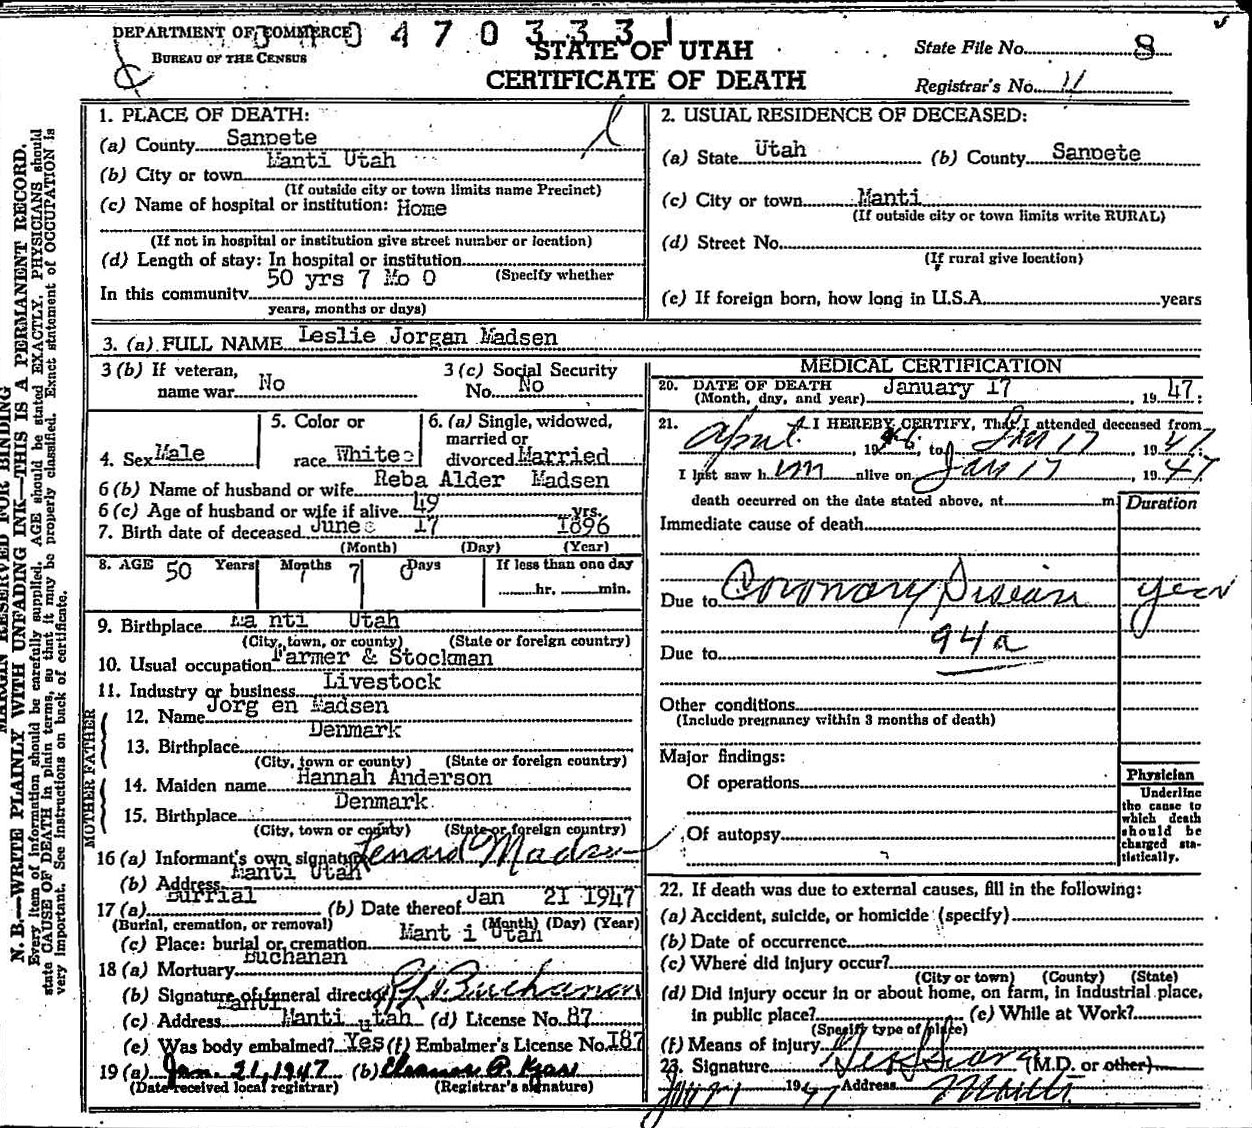 DEPARTMENT OF COMMERCE
BUREAU OF THE CENSUS
4 7 0 3 3 3 1
STATE OF UTAH
CERTIFICATE OF DEATH
State File No. 8
Registrar's No. 11
MARGIN RESERVED FOR BINDING
N. B.—WRITE PLAINLY WITH UNFADING INK—THIS IS A PERMANENT RECORD.
Every item of information should be carefully supplied. AGE should be stated EXACTLY. PHYSICIANS should
state CAUSE OF DEATH in plain terms, so that it may be properly classified. Exact statement of OCCUPATION is
very important. See instructions on back of certificate.
1. PLACE OF DEATH:
(a) County Sanpete
(b) City or town Manti Utah
(If outside city or town limits name Precinct)
(c) Name of hospital or institution: Home
(If not in hospital or institution give street number or location)
(d) Length of stay: In hospital or institution
(Specify whether
In this community 50 yrs 7 Mo 0
years, months or days)
2. USUAL RESIDENCE OF DECEASED:
(a) State Utah (b) County Sanpete
(c) City or town Manti
(If outside city or town limits write RURAL)
(d) Street No.
(If rural give location)
(e) If foreign born, how long in U.S.A. years
3. (a) FULL NAME Leslie Jorgan Madsen
3 (b) If veteran, name war No
3 (c) Social Security No. No
4. Sex Male
5. Color or race White
6. (a) Single, widowed, married or divorced Married
6 (b) Name of husband or wife Reba Alder Madsen
6 (c) Age of husband or wife if alive 49 yrs.
7. Birth date of deceased June 17 1896
(Month) (Day) (Year)
8. AGE 50 Years Months 7 0 Days If less than one day
hr. min.
9. Birthplace Ma nti Utah
(City, town, or county) (State or foreign country)
10. Usual occupation Farmer & Stockman
11. Industry or business Livestock
FATHER
12. Name Jorg en Madsen
13. Birthplace Denmark
(City, town or county) (State or foreign country)
MOTHER
14. Maiden name Hannah Anderson
15. Birthplace Denmark
(City, town or county) (State or foreign country)
16 (a) Informant's own signature Lenard Madsen
(b) Address Manti Utah
17 (a) Burrial (b) Date thereof Jan 21 1947
(Burial, cremation, or removal) (Month) (Day) (Year)
(c) Place: burial or cremation Mant i Utah
18 (a) Mortuary Buchanan
(b) Signature of funeral director Buchanan
(c) Address Manti utah (d) License No. 87
(e) Was body embalmed? Yes (f) Embalmer's License No. I87
19 (a) Jan. 21, 1947 (b) Eleanor P.
(Date received local registrar) (Registrar's signature)
MEDICAL CERTIFICATION
20. DATE OF DEATH January 17, 1947:
(Month, day, and year)
21. I HEREBY CERTIFY, That I attended deceased from
April, 1946, to Jan 17, 1947
I last saw him alive on Jan 17, 1947
death occurred on the date stated above, at m.
Duration
Immediate cause of death
Due to Coronary Disease year
94a
Due to
Other conditions
(Include pregnancy within 3 months of death)
Major findings:
Of operations
Of autopsy
Physician
Underline
the cause to
which death
should be
charged sta-
tistically.
22. If death was due to external causes, fill in the following:
(a) Accident, suicide, or homicide (specify)
(b) Date of occurrence
(c) Where did injury occur?
(City or town) (County) (State)
(d) Did injury occur in or about home, on farm, in industrial place,
in public place? (e) While at Work?
(Specify type of place)
(f) Means of injury
23. Signature (M.D. or other)
Jan 21 1947 Address Manti